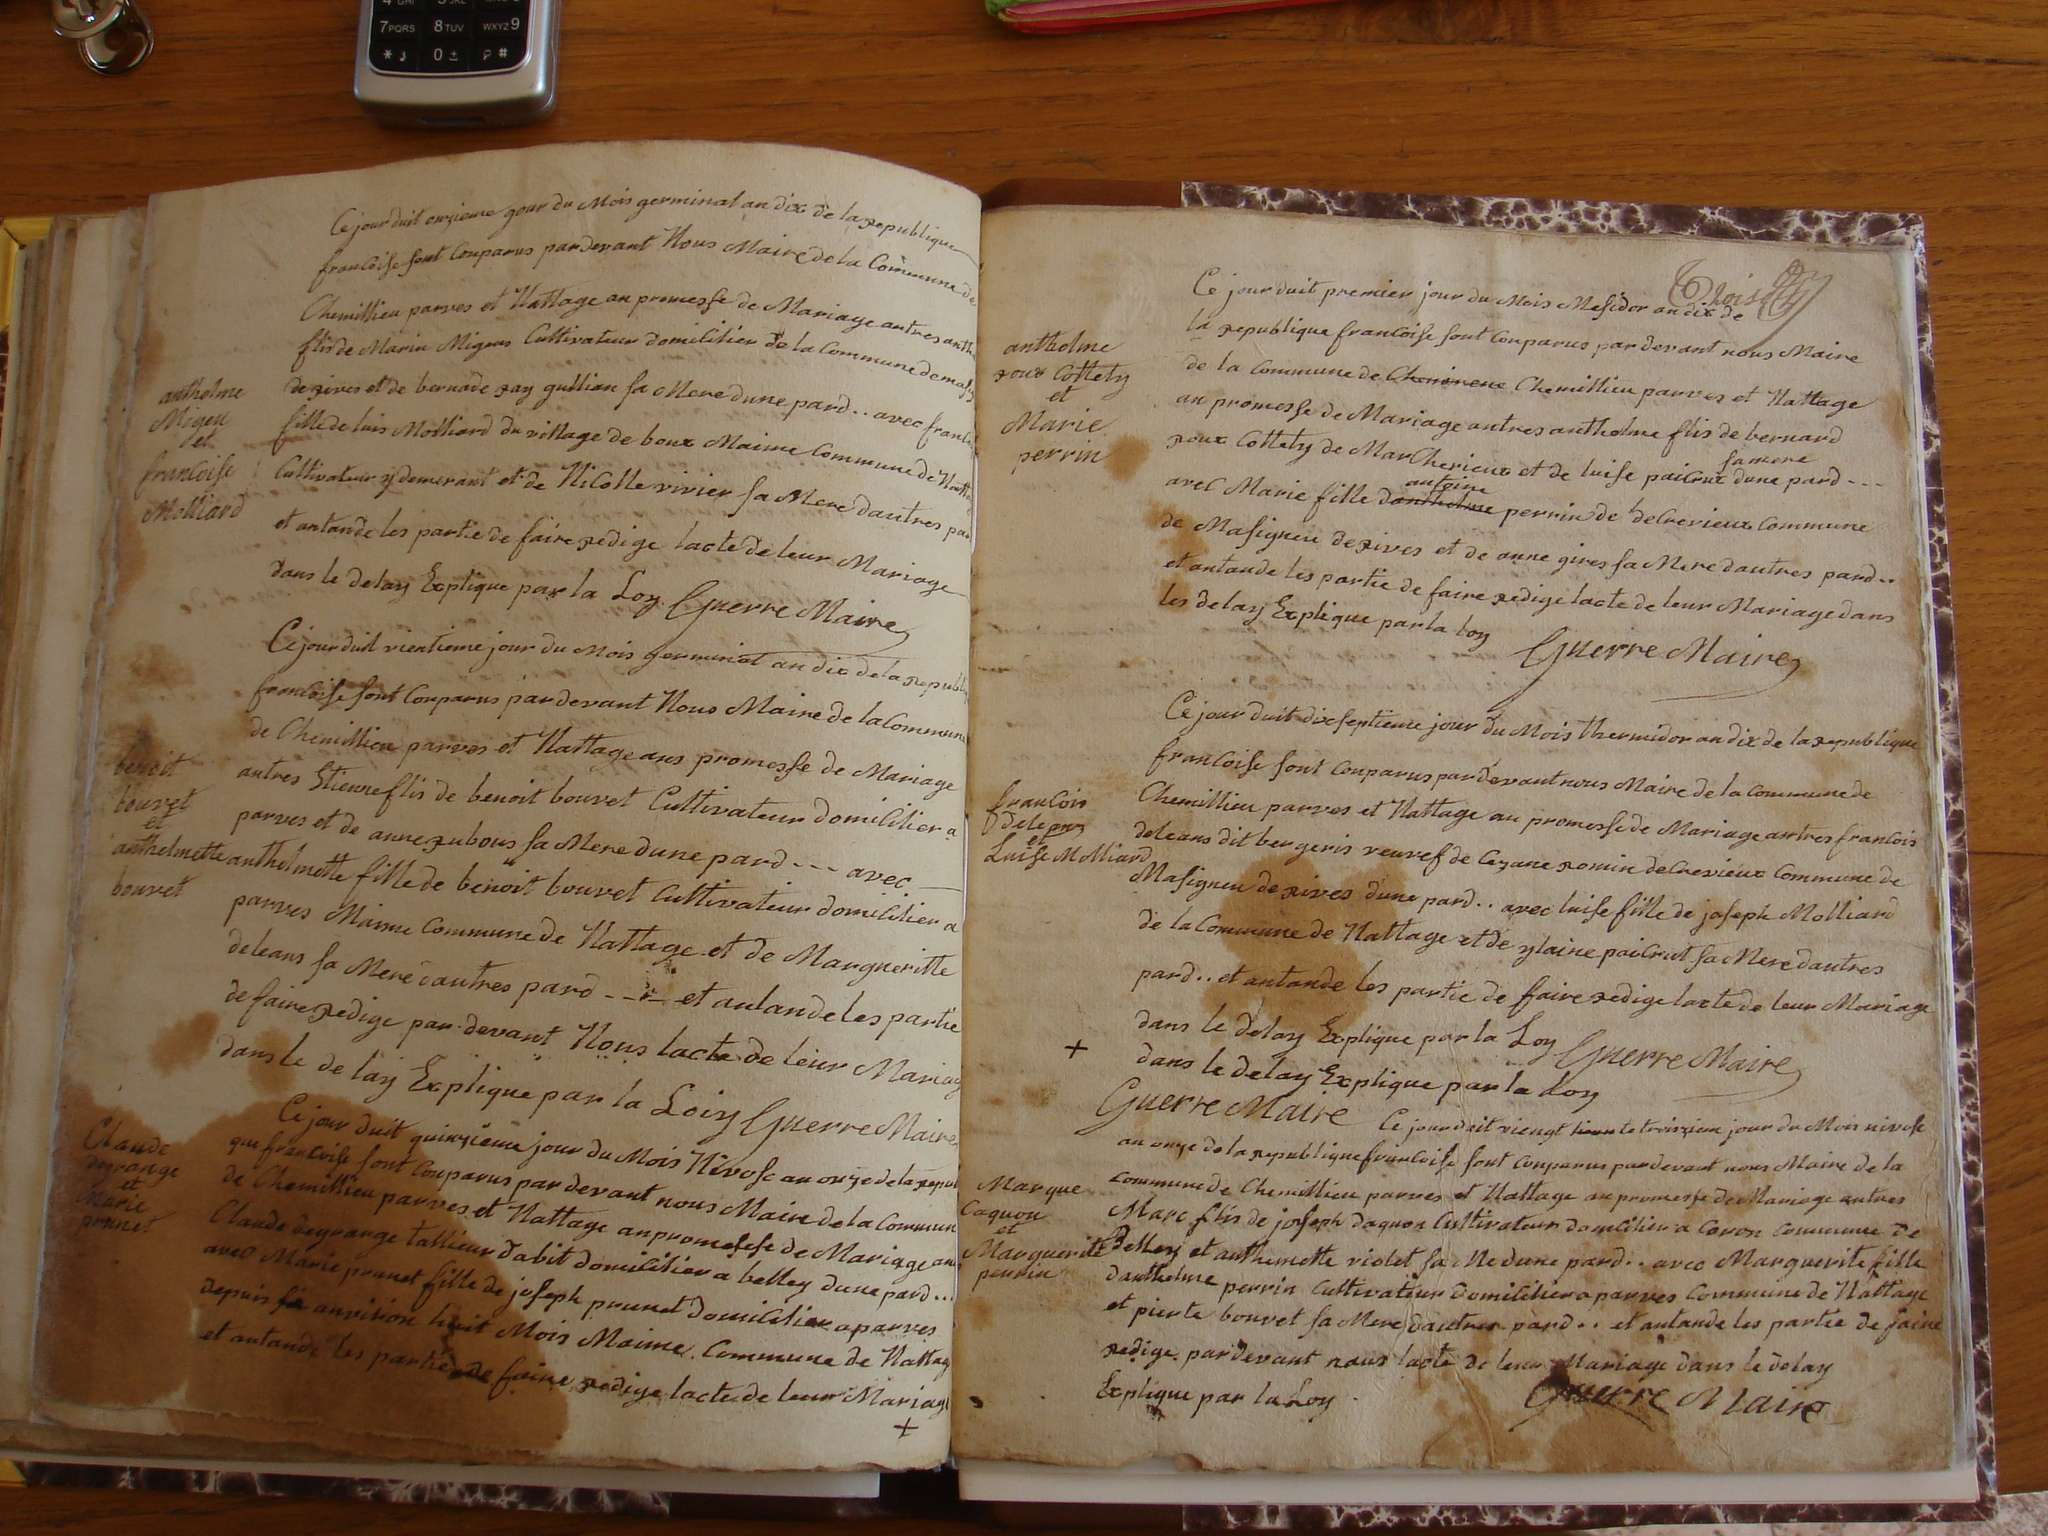 4 GHI 5 JKL
7PQRS 8TUV WXYZ9
* 0 ± #
Ce jour duit onzieme jour du Mois germinal an dix de la republique
francoise sont Conparus par devant Nous Maire de la Commune de
Chemillieu parves et Nattage au promesse de Mariage antres anth
flis de Marin Migeus Cultivateur domicilier de la Commune de masig
de rives et de bernade ray gullian sa Mere dune pard .. avec franc
fille de luis Molliard du village de boux Maime Commune de Natta
Cultivateur y demerant et de Nicolle vivier sa Mere dautres par
et antande les partie de faire redige lacte de leur Mariage
dans le delay Explique par la Loy Guerre Maire
antholme
Migeu
et
francoise
Molliard
Ce jour duit vientieme jour du Mois germinal an dix de la republi
francoise sont Conparus par devant Nous Maire de la Commune
de Chemillieu parves et Nattage aus promesse de Mariage
antres Etienne flis de benoit bouvet Cultivateur domicilier a
parves et de anne rubous sa Mere dune pard --- avec
anthelmette fille de benoit bouvet Cultivateur domicilier a
parves Maime Commune de Nattage et de Margueritte
deleans sa Mere dautres pard ---- et antande les partie
de faire redige par devant Nous lacte de leur Mariag
dans le de lay Explique par la Loiy Guerre Maire
benoit
bouvet
et
anthelmette
bouvet
Ce jour duit quinzieme jour du Mois Nivose an onze de la repu
que francoise sont Conparus par devant nous Maire de la Commun
de Chemillieu parves et Nattage au promesse de Mariage an
Claude degrange tallieur dabit domicilier a belley dune pard ...
avec Marie prunet fille de joseph prunet domicilier a parves
depuis anviron huit Mois Maime Commune de Nattag
et antande les partie de faire redige lacte de leur Mariag
+
Claude
degrange
et
Marie
prunet
Trois
Ce jour duit premier jour du Mois Mesidor an dix de
la republique francoise sont Conparus par devant nous Maire
de la Commune de Chemillieu parves et Nattage
au promesse de Mariage antres antholme flis de bernard
roux Collety de Marcherieux et de luise paicrut sa mere dune pard ---
avec Marie fille dantholme antoine perrin de de Crevieux Commune
de Masigneu de rives et de anne gires sa Mere dautres pard ..
et antande les partie de faire redige lacte de leur Mariage dans
les delay Explique par la loy Guerre Maire
antholme
roux Collety
et
Marie
perrin
Ce jour duit dixseptieme jour du Mois thermidor an dix de la republique
francoise sont Conparus par devant nous Maire de la Commune de
Chemillieu parves et Nattage au promesse de Mariage antres francois
deleans dit bergeris veuvef de Cezane romin de Crevieux Commune de
Masigneu de rives dune pard .. avec luise fille de joseph Molliard
de la Commune de Nattage et de ylaine paicrut sa Mere dautres
pard .. et antande les partie de faire redige lacte de leur Mariage
dans le delay Explique par la Loy Guerre Maire
francois
et
Luise Molliard
+ dans le delay Explique par la Loy
Guerre Maire
Ce jour duit viengt le troizieme jour du Mois nivose
an onze de la republique francoise sont Conparus par devant nous Maire de la
Commune de Chemillieu parves et Nattage au promesse de Mariage antres
Marc flis de joseph daquon Cultivateur domicilier a Coron Commune de
Belley et anthemette violet sa Me dune pard .. avec Marguerite fille
dantholme perrin Cultivateur domicilier a parves Commune de Nattage
et pierte bouvet sa Mere dautres pard .. et antande les partie de faire
redige par devant nous lacte de leur Mariage dans le delay
Explique par la Loy
Guerre Maire
Marque
Caquon
et
Marguerite
perrin